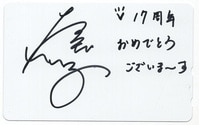 17周年
おめでとう
ございま〜す